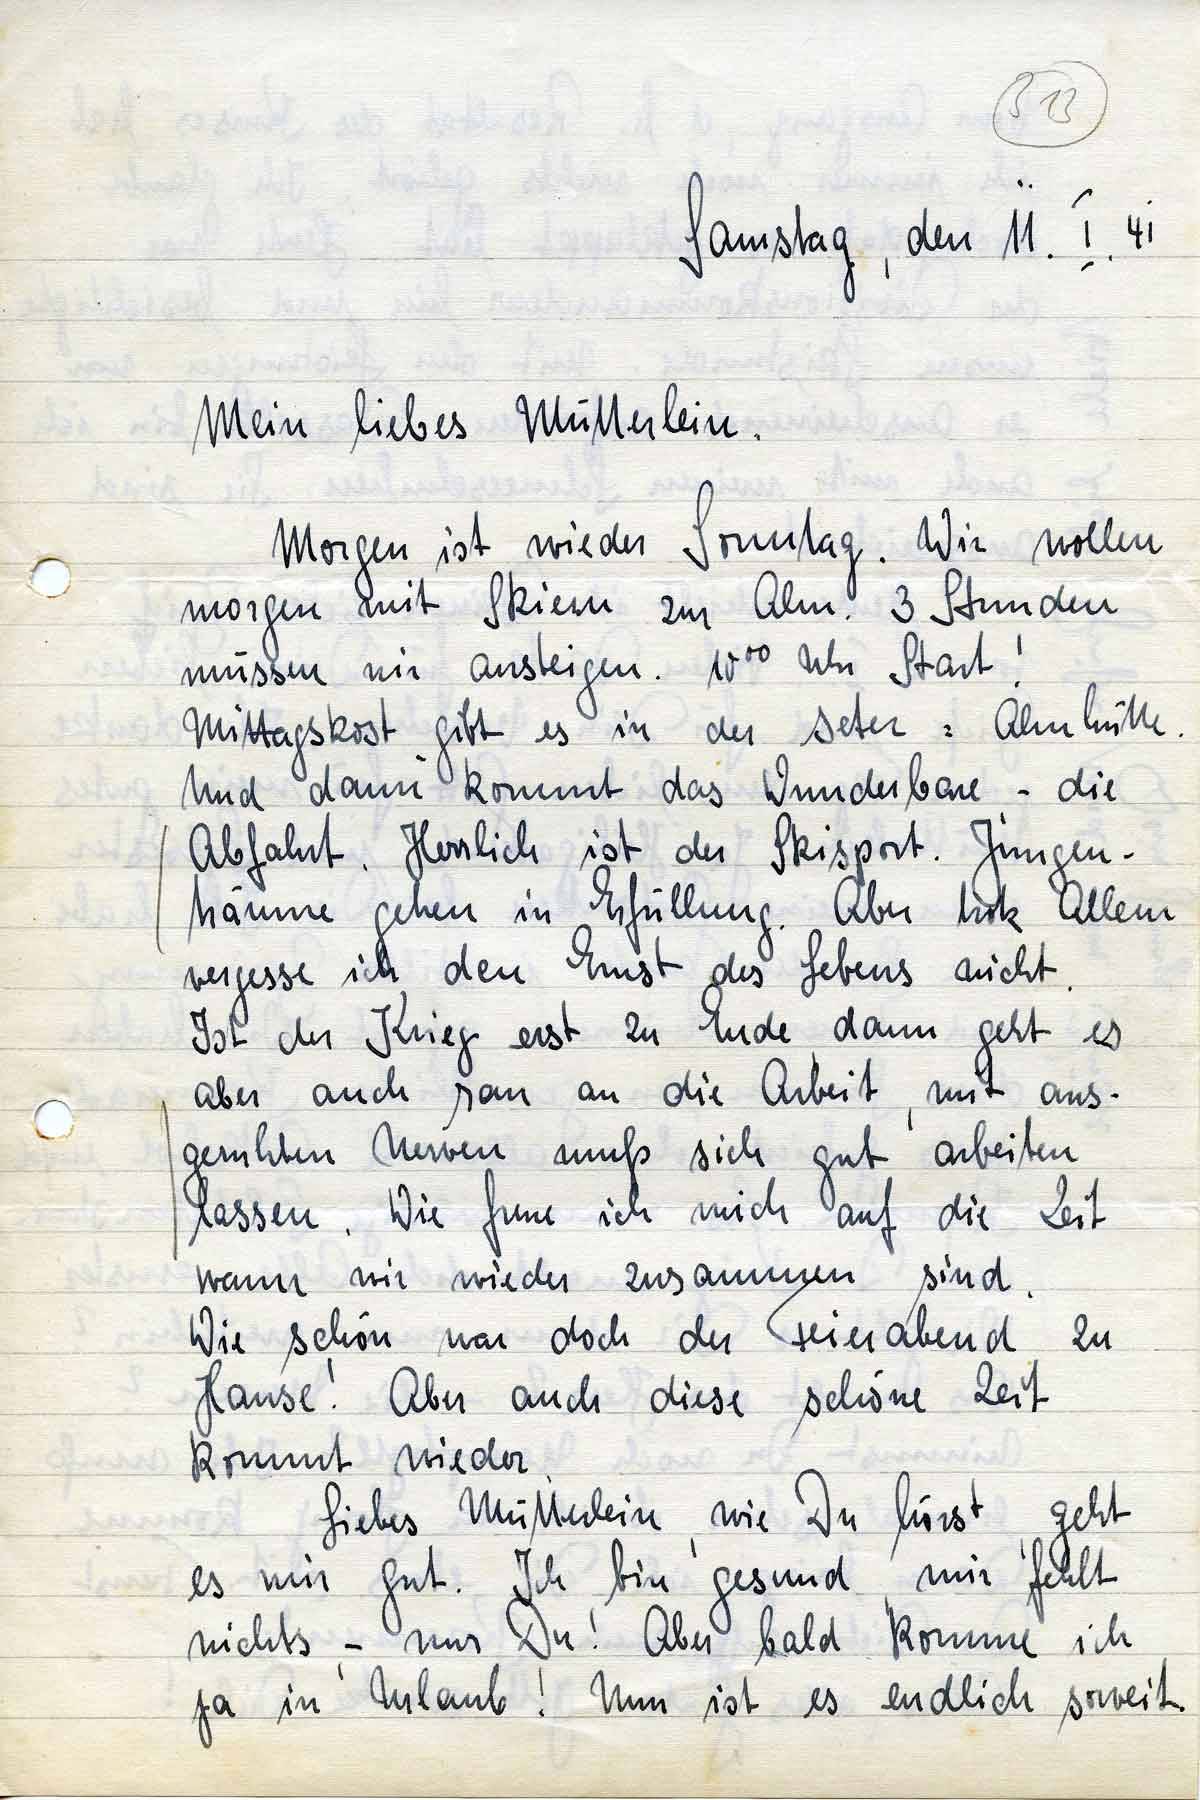 313
Samstag, den 11. I. 41
Mein liebes Mütterlein.
Morgen ist wieder Sonntag. Wir wollen
morgen mit Skiern zur Alm. 3 Stunden
müssen wir ansteigen. 10⁰⁰ Uhr Start!
Mittagskost gibt es in der seter = Almhütte.
Und dann kommt das Wunderbare - die
Abfahrt. Herrlich ist der Skisport. Jungen-
träume gehen in Erfüllung. Aber trotz Allem
vergesse ich den Ernst des Lebens nicht.
Ist der Krieg erst zu Ende, dann geht es
aber auch ran an die Arbeit, mit aus-
geruhten Nerven muß sich gut arbeiten
lassen. Wie freue ich mich auf die Zeit
wann wir wieder zusammen sind.
Wie schön war doch der Feierabend zu
Hause! Aber auch diese schöne Zeit
kommt wieder.
Liebes Mütterlein, wie Du hörst, geht
es mir gut. Ich bin gesund, mir fehlt
nichts, - nur Du! Aber bald komme ich
ja in Urlaub! Nun ist es endlich soweit.